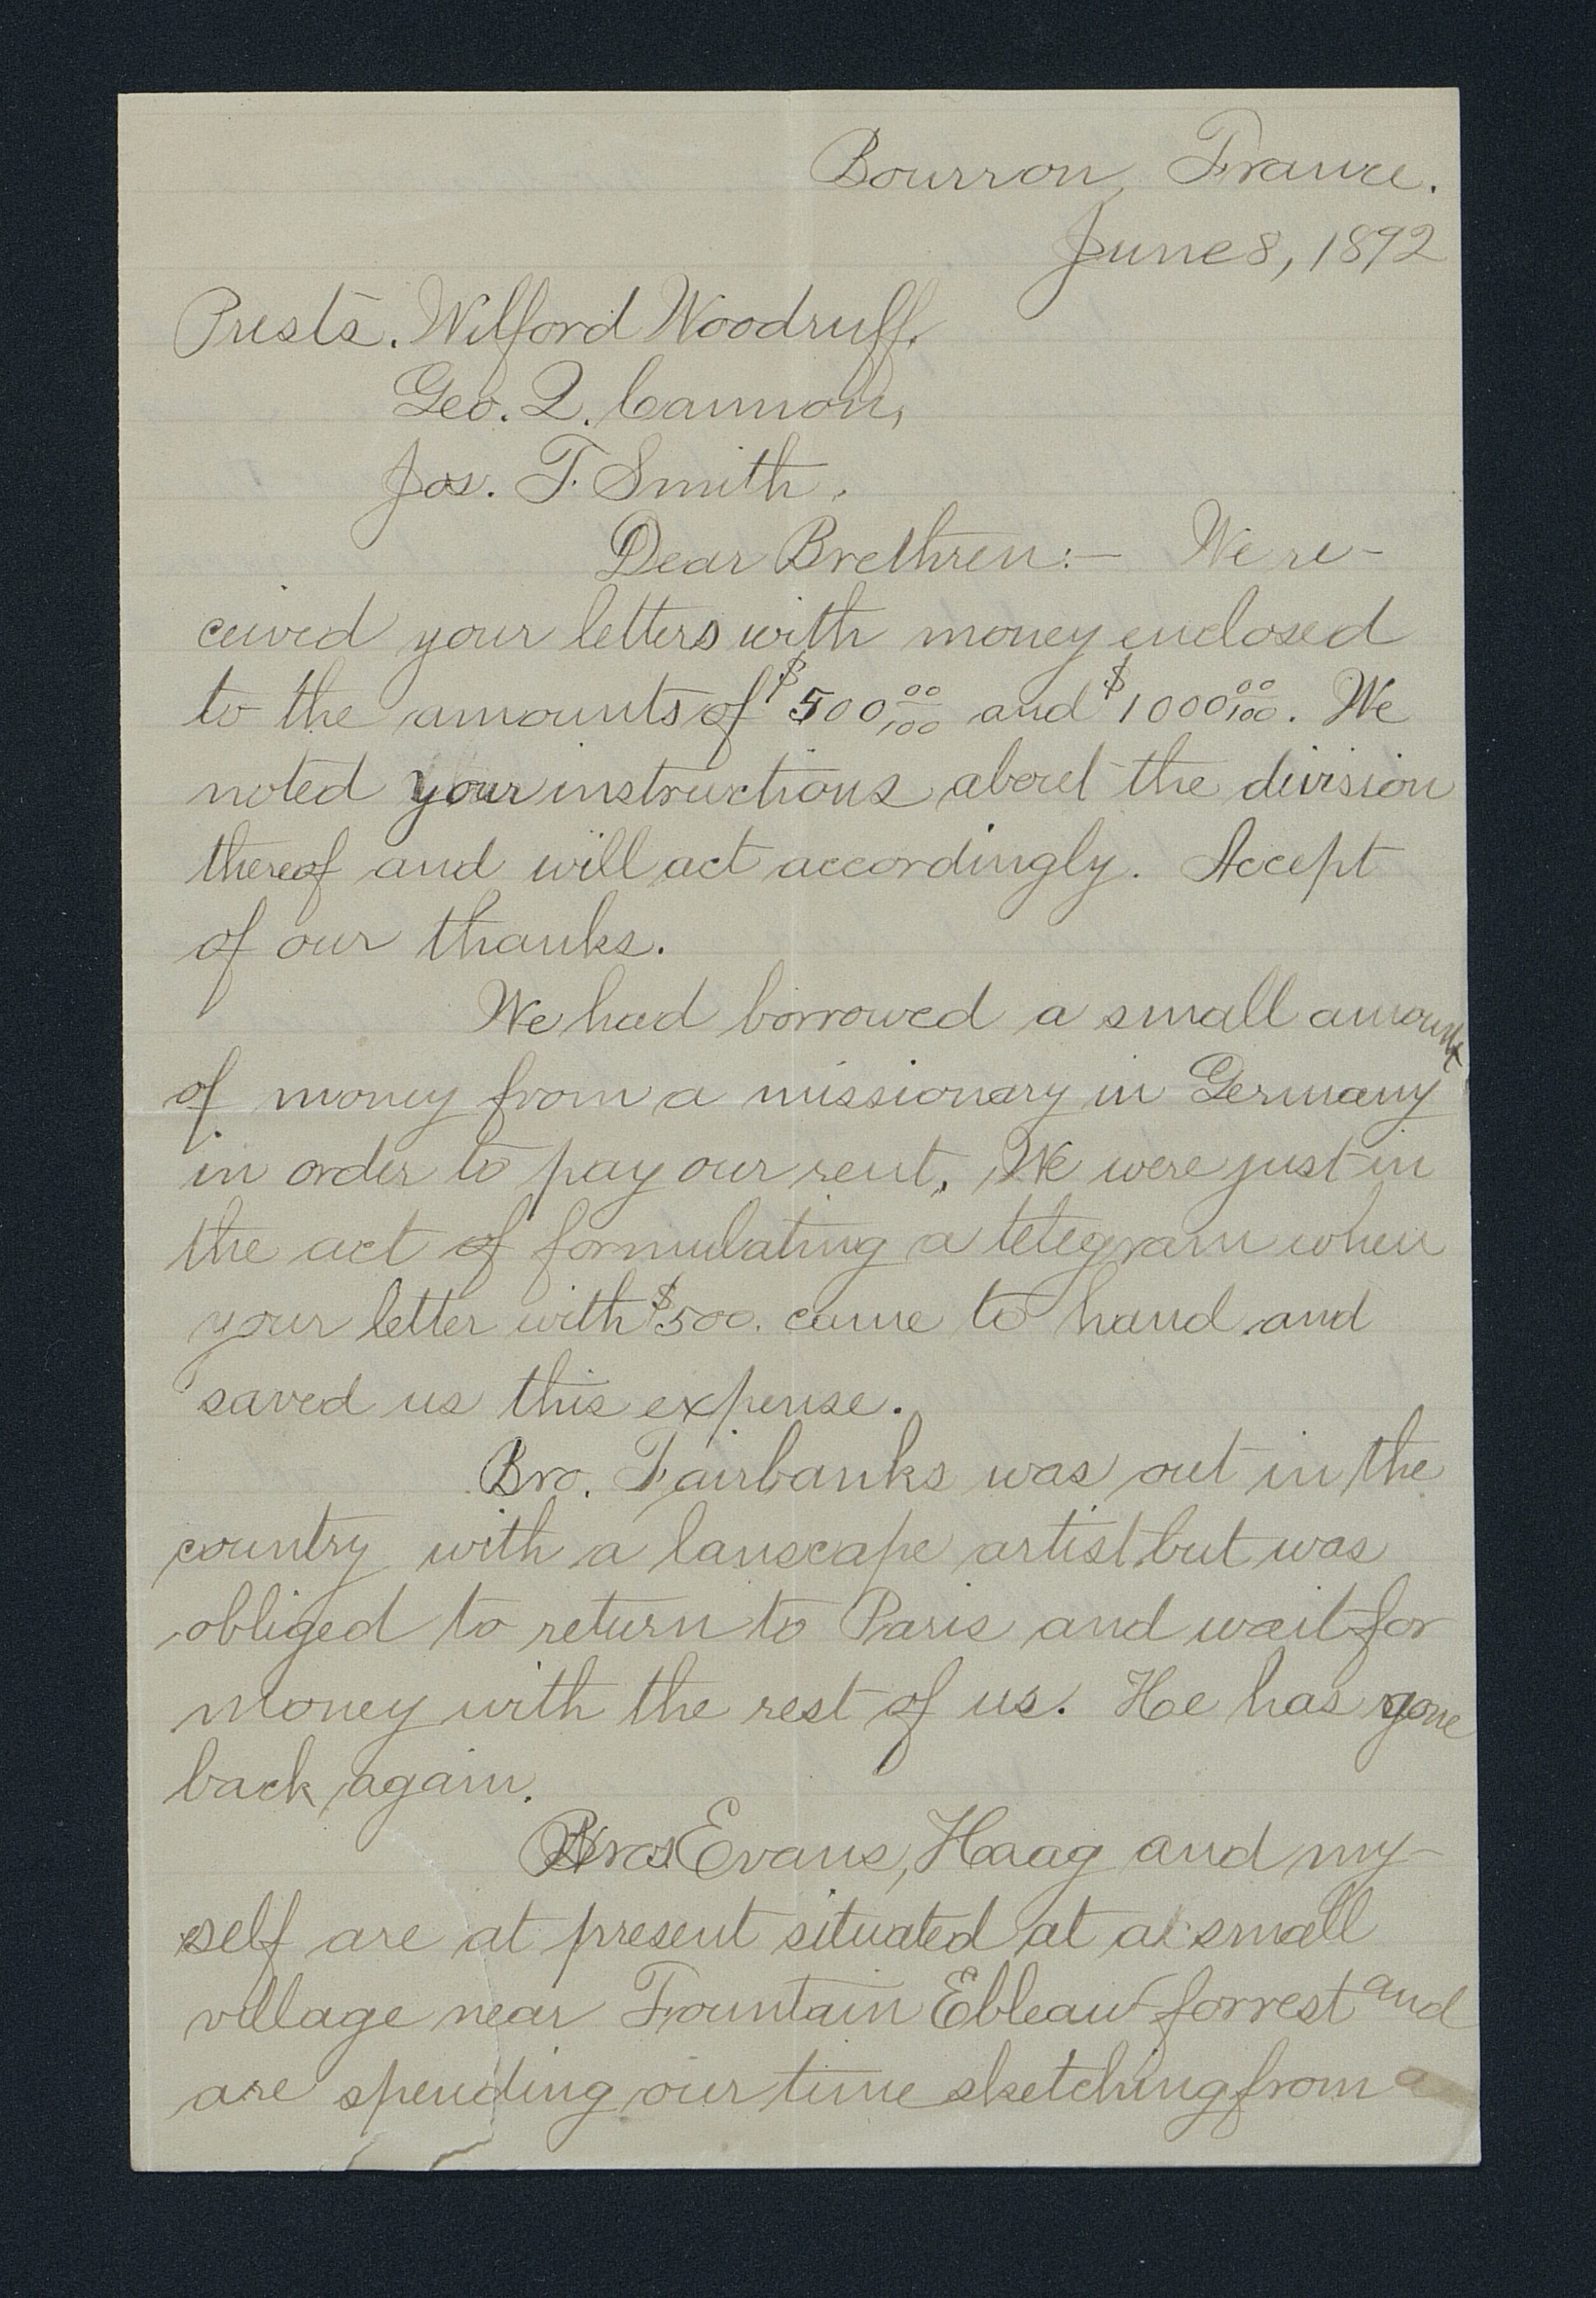 Bourron, France.
June 8, 1892
Prests. Wilford Woodruff,
Geo. Q. Cannon,
Jos. F. Smith.
Dear Brethren:— We re-
ceived your letters with money enclosed
to the amounts of $500 00/100 and $1000 00/100. We
noted your instructions about the division
thereof and will act accordingly. Accept
of our thanks.
We had borrowed a small amount
of money from a missionary in Germany
in order to pay our rent. We were just in
the act of formulating a telegram when
your letter with $500. came to hand and
saved us this expense.
Bro. Fairbanks was out in the
country with a lanscape artist but was
obliged to return to Paris and wait for
money with the rest of us. He has gone
back again.
Bros. Evans, Haag and my-
self are at present situated at a small
village near Fountain Ebleau forrest and
are spending our time sketching from